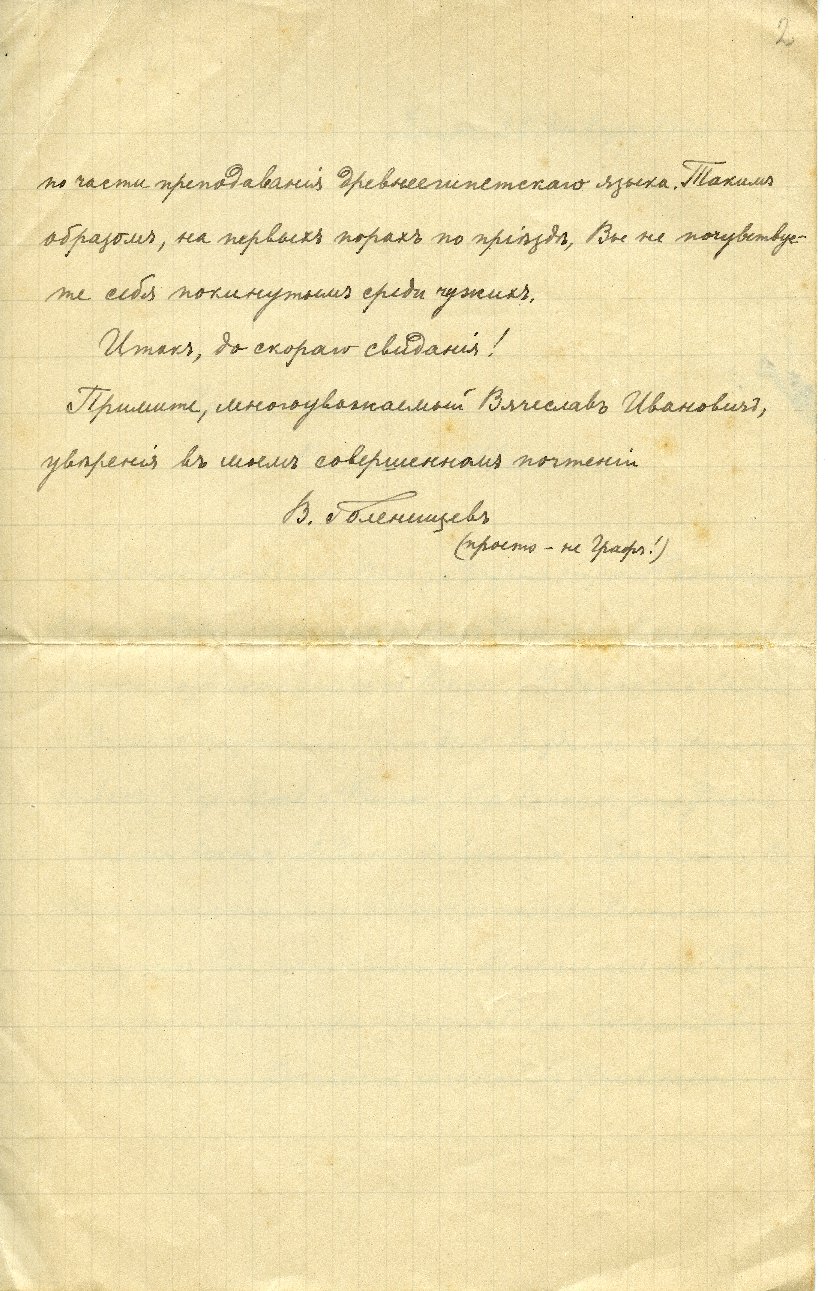 2
по части преподаванія древнеегипетскаго языка. Такимъ
образомъ, на первыхъ порахъ по пріѣздѣ, Вы не почувствуе-
те себя покинутымъ среди чужихъ.
Итакъ, до скораго свиданія!
Примите, многоуважаемый Вячеславъ Ивановичъ,
увѣренія въ моемъ совершенномъ почтеніи
В. Голенищевъ
(просто - не Графъ!)